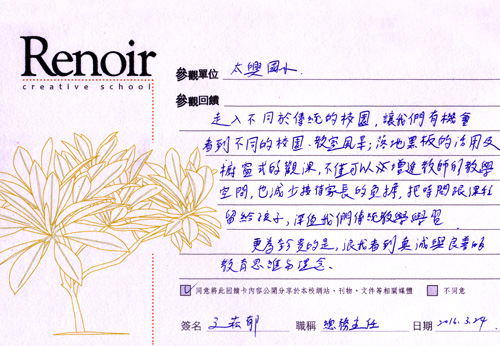 Renoir
creative school
參觀單位 太興國小
參觀回饋
走入不同於傳統的校園，讓我們有機會
看到不同的校園、教室風景；落地黑板的活用及
櫥窗式的觀課，不僅可以增進教師的教學
空間，也減少接待家長的負擔，把時間跟課程
留給孩子，深值我們傳統教學學習
更為珍貴的是，讓我看到真誠與良善的
教育思維與理念。
同意將此回饋卡內容公開分享於本校網站、刊物、文件等相關媒體 不同意
簽名 王 郁 職稱 總務主任 日期 2016.3.24.